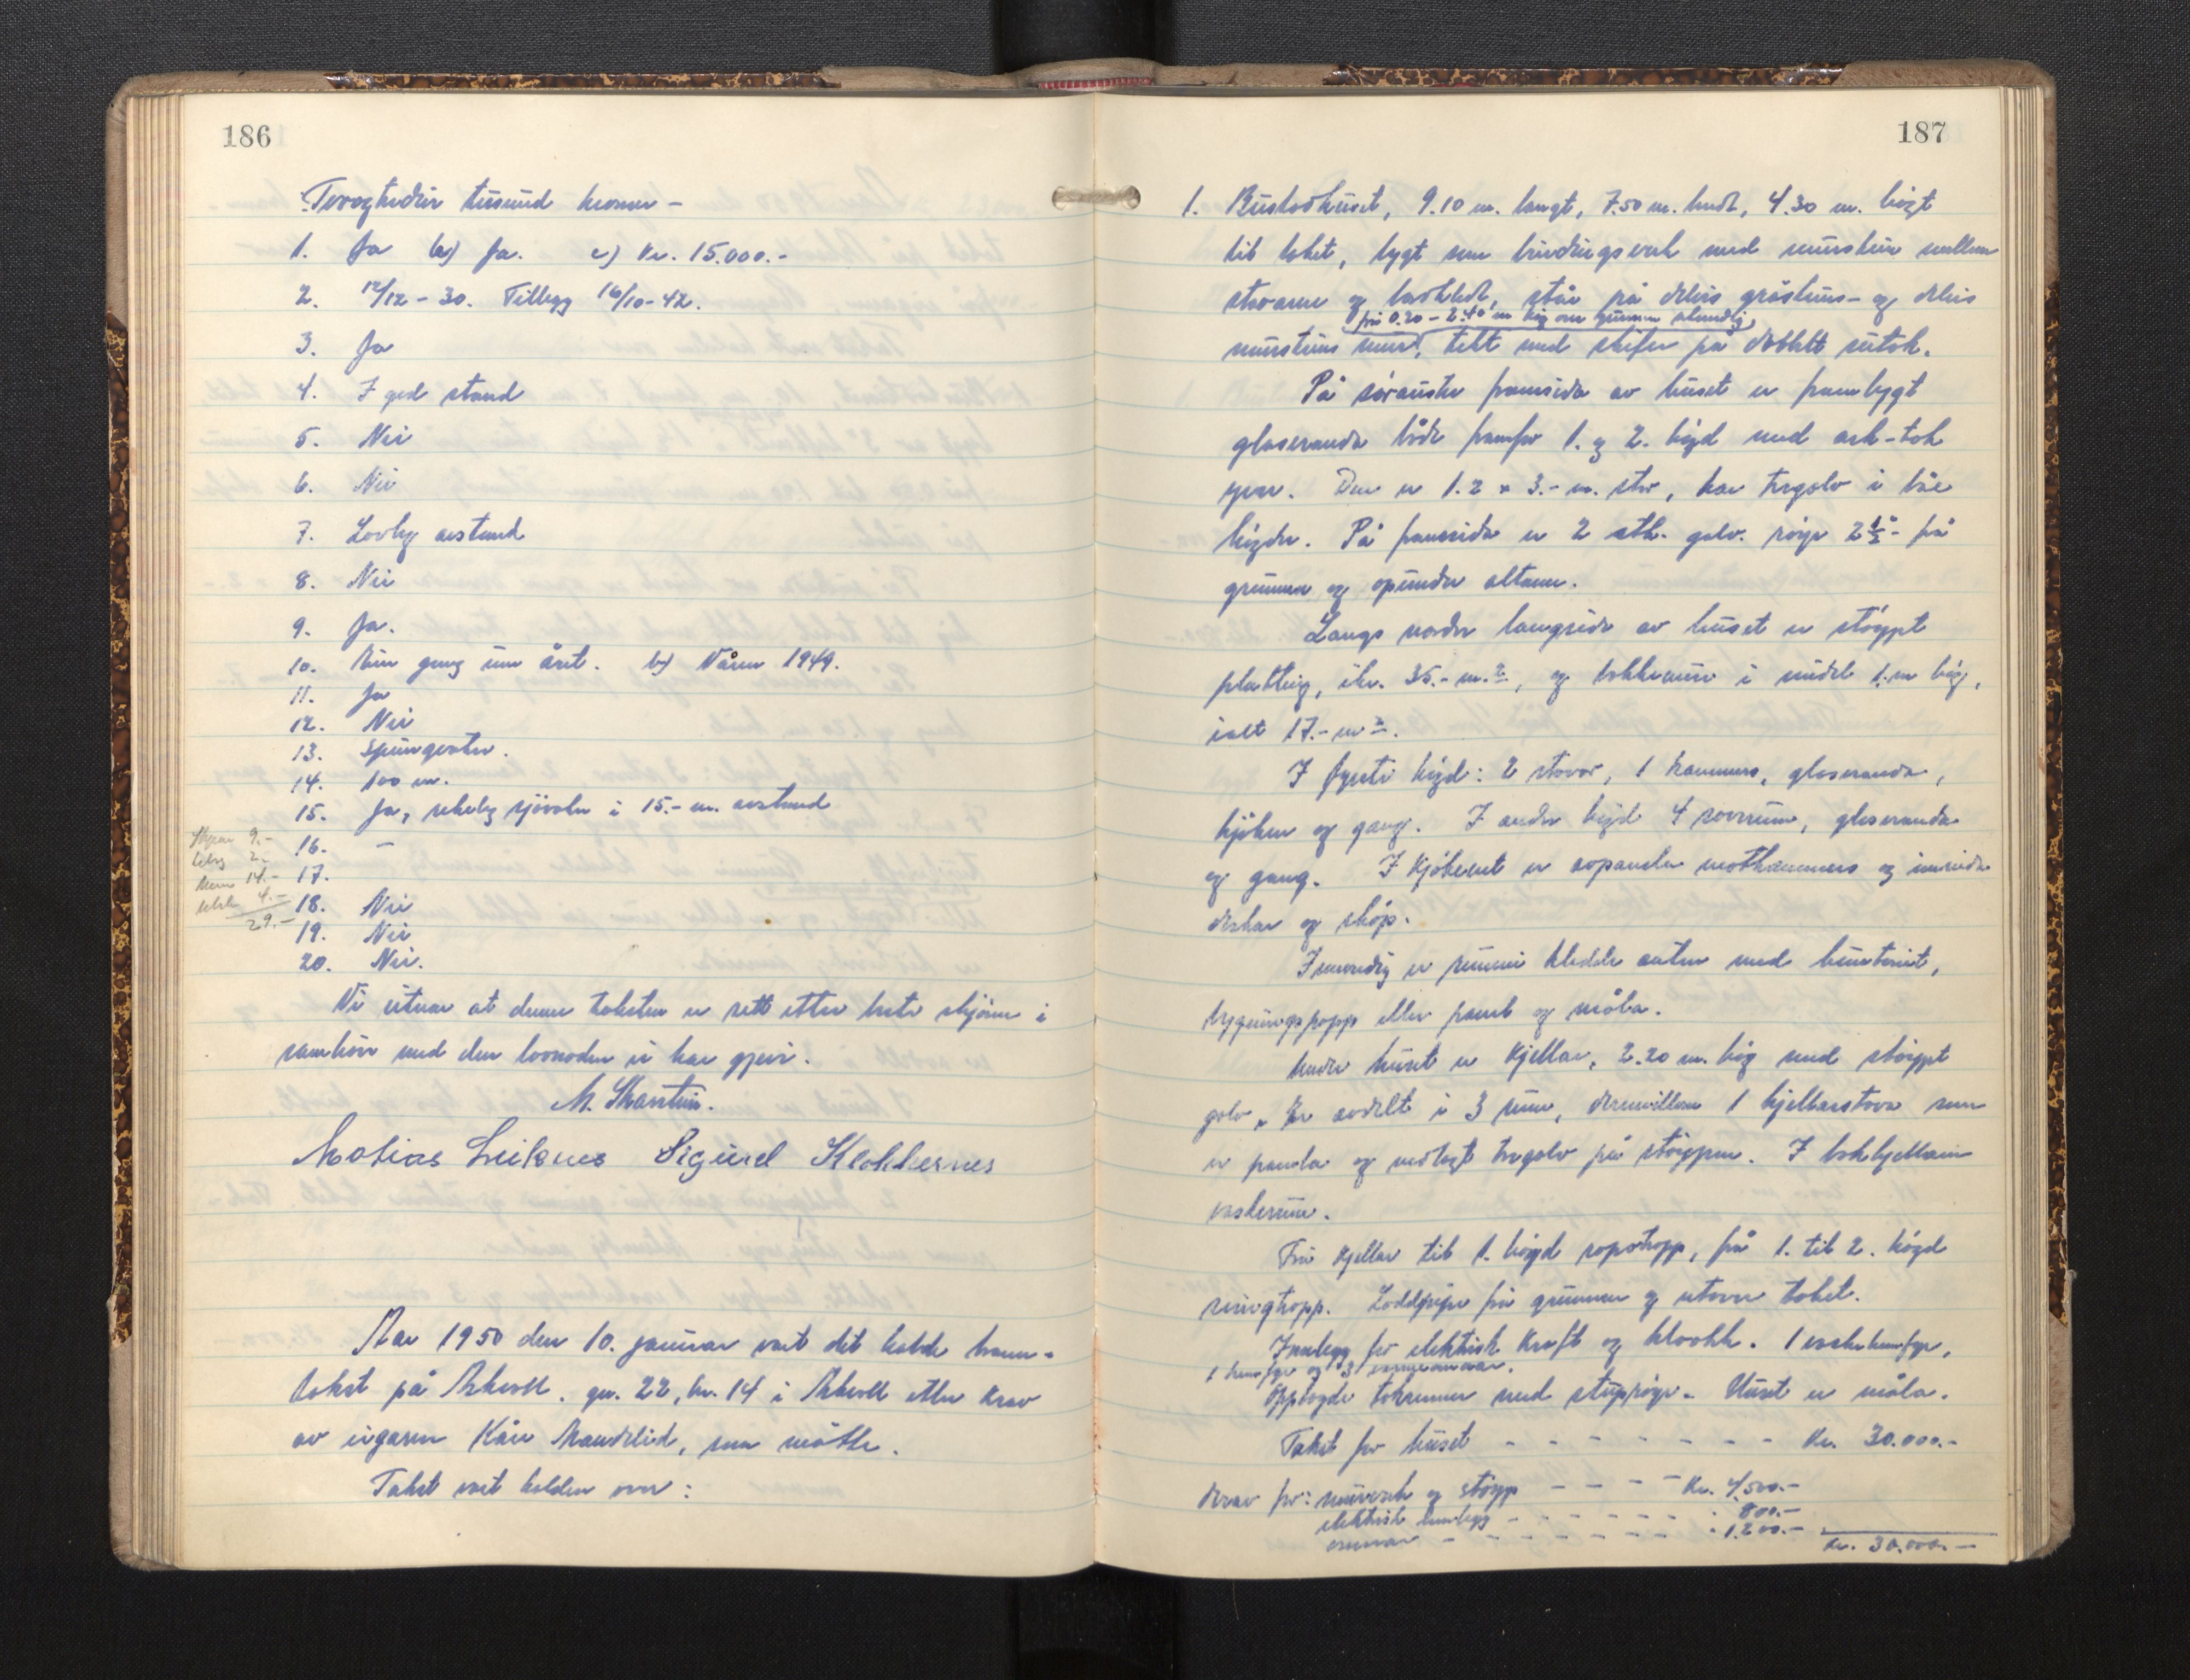 186
Tvoghidve tusund kronor -
1. Ja b) Ja. c) Kr. 15.000.-
2. 12/12 - 30. Tillegg 16/10-42.
3. Ja
4. I god stand
5. Nei
6. Nei
7. Lovleg avstand
8. Nei
9. Ja.
10. Ein gong um året. b) Våren 1949.
11. Ja
12. Nei
13. Springvatn.
14. 100 m.
15. Ja, rekeleg sjövatn i 15.- m. avstand
Skyss 9.-
16. -
2.-
14.-
17.
4.-
18. Nei
29.-
19. Nei
20. Nei.
Vi vitnar at denne taksten er rett etter beste skjönn i
samhöve med den lovnaden vi har gjeve.
M. Skarstein.
Matias Leiknes Sigurd Klokkernes
Aar 1950 den 10. januar vart det halde brann-
takst på Askvoll. gn. 22, bn. 14 i Askvoll etter krav
av eigaren Kåre Maudelid, som mötte.
Takst vart halden over:
187
1. Bustadhuset, 9.10 m. langt, 7.50 m. bredt, 4.30 m. högt
til taket, bygt som bindingsverk med murstein mellom
stavane og bordkledt, står på delvis gråsteins- og delvis
frå 0.20 - 2.40 m høg over grunnen utvendig
mursteins mur, tekt med skifer på dobbelt sutak.
På söraustre framsida av huset er frambygt
glasveranda både framfor 1. og 2. högd med ark-tak
yver. Den er 1.2 x 3.- m. stor, har tregolv i båe
högder. På framsida er 2 stk. galv. röyr 2 1/2" frå
grunnen og opunder altanen.
Langs nordre langside av huset er stöypt
platting, ikr. 35.- m.², og bakkemur i midel 1.- m høg,
ialt 17.- m².
I fyrste högd: 2 stover, 1 kammers, glasveranda,
kjöken og gang. I andre högd 4 soverum, glasveranda
og gang. I kjökenet er avpanela matkammers og innreidde
diskar og skåp.
Innvendig er rummi kledde anten med huntonit,
bygningspapp eller panel og måla.
Under huset er kjellar, 2.20 m. høg med stöypt
golv. Er avdelt i 3 rum, derimillom 1 kjellarstova som
er panela og nedlagt tregolv på stöypen. I bakkjellaren
vaskerum.
Frå kjellar til 1. högd rapstropp, frå 1. til 2. högd
svingtropp. Loddpipe frå grunnen og utover taket.
Innlegg for elektrisk kraft og kloakk. 1 vaskekomfyr,
1 komfyr og 3 varmeomnar.
Opplagde takrenner med stuprøyr. Huset er måla.
Takst for huset - - - - - - - - Kr. 30.000.-
derav for: murverk og stöyp - - - - Kr. 4.500.-
elektrisk innlegg - - - - - - " 800.-
omnar - - - - - - - " 1.200.-
Kr. 30.000.-